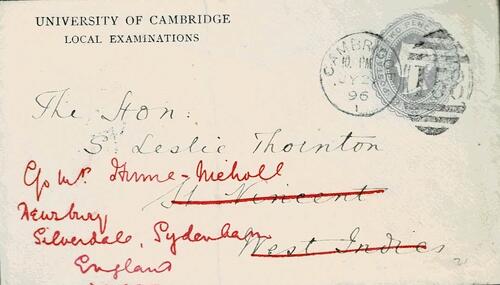 UNIVERSITY OF CAMBRIDGE
LOCAL EXAMINATIONS
CAMBRIDGE
10 PM
JY 2
96
1
POSTAGE
The Hon:
S Leslie Thornton
C/o Mr Hume-Nicholl
St Vincent
Newbury
Silverdale, Sydenham
West Indies
England